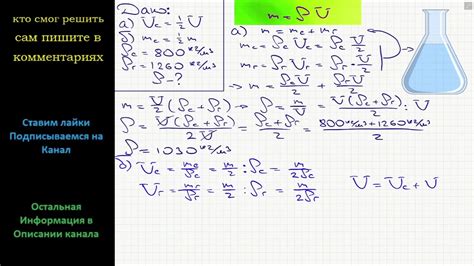 кто смог решить
сам пишите в
комментариях
Ставим лайки
Подписываемся на
Канал
Остальная
Информация в
Описании канала
Дано:
а) V_c = 1/2 V
б) m_c = 1/2 m
ρ_c = 800 кг/м3
ρ_г = 1260 кг/м3
ρ - ?
m = ρ V
а) m = m_c + m_г
m_c = ρ_c V_c = ρ_c V/2
m_г = ρ_г V_г = ρ_г V/2
→ m = ρ_c V/2 + ρ_г V/2
m = V/2 (ρ_c + ρ_г) → ρ = m/V = V(ρ_c + ρ_г)/2V
ρ = V(ρ_c + ρ_г)/2V = ρ_c + ρ_г/2 = 800 кг/м3 + 1260 кг/м3/2
ρ = 1030 кг/м3
б) V_c = m_c/ρ_c = m/2 : ρ_c = m/2ρ_c
V_г = m_г/ρ_г = m/2 : ρ_г = m/2ρ_г
V = V_c + V